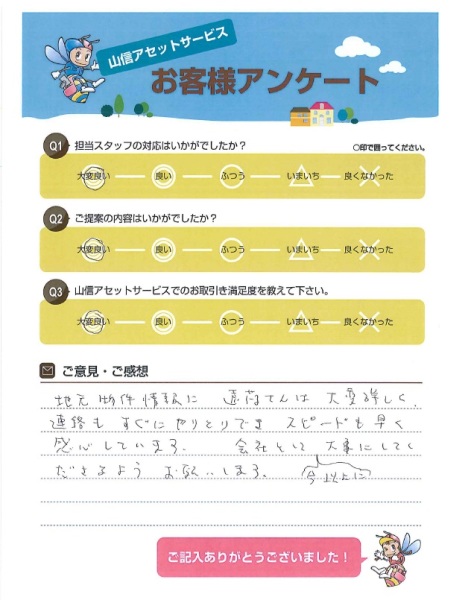 山信アセットサービス
お客様アンケート
Q1 担当スタッフの対応はいかがでしたか？
○印で囲ってください。
大変良い 良い ふつう いまいち 良くなかった
Q2 ご提案の内容はいかがでしたか？
大変良い 良い ふつう いまいち 良くなかった
Q3 山信アセットサービスでのお取引き満足度を教えて下さい。
大変良い 良い ふつう いまいち 良くなかった
ご意見・ご感想
地元物件情報に さんは 大変詳しく、
連絡も すぐに やりとりでき スピードも早く
感心しています。 会社として 大事にして
くださるよう お願いします。 今以上に
ご記入ありがとうございました！